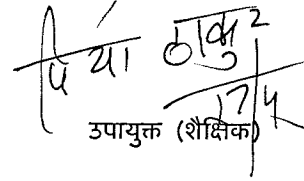 पिया ठाकुर
17/4
उपायुक्त (शैक्षिक)